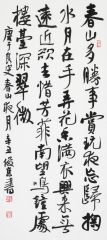 春山多勝事賞玩夜忘歸掬
水月在手弄花香滿衣興來無
遠近欲去惜芳菲南望鳴鐘處
樓臺深翠微
于良史春山夜月辛丑